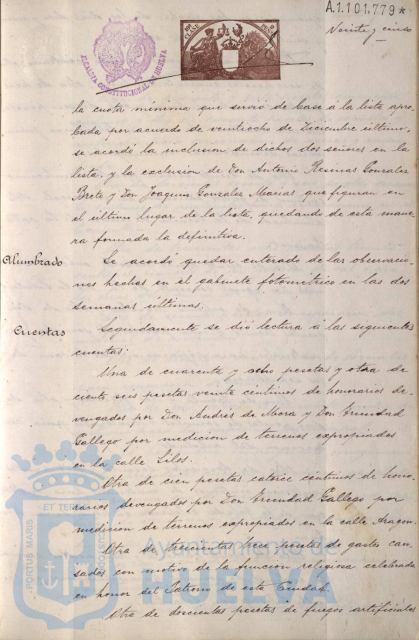 A.1.101.779*
Veinte y cinco
ALCALDIA CONSTITUCIONAL DE HUELVA
la cuota mínima que sirvió de base á la lista apro-
bada por acuerdo de veintiocho de Diciembre último
se acordó la inclusion de dichos dos señores en la
lista, y la exclusion de Don Antonio Gonzalez
Brete y Don Joaquin Gonzalez Macias que figuran en
el último lugar de la lista, quedando de esta mane-
ra formada la definitiva.
Alumbrado
Se acordó quedar enterado de las observacio-
nes hechas en el gabinete fotométrico en las dos
semanas últimas.
Cuentas
Seguidamente se dió lectura á las siguientes
cuentas:
Una de cuarenta y ocho pesetas y otra de
ciento seis pesetas veinte céntimos de honorarios de-
vengados por Don Andrés de Mora y Don Trinidad
Gallego por medicion de terrenos expropiados
en la calle Silos.
Otra de cien pesetas catorce céntimos de hono-
rarios devengados por Don Trinidad Gallego por
medicion de terrenos expropiados en la calle Aragon.
Otra de trescientas trece pesetas de gastos cau-
sados con motivo de la funcion religiosa celebrada
en honor del Patrono de esta Ciudad.
Otra de doscientas pesetas de fuegos artificiales
PORTUS MARIS ET TERRAE
Ayuntamiento de
HUELVA